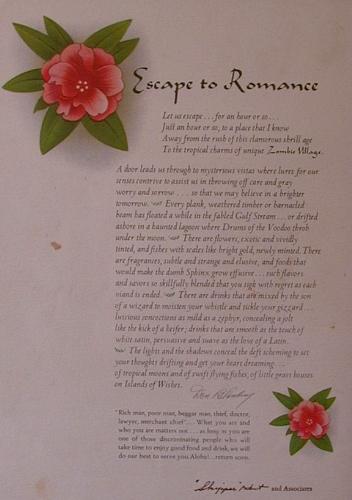 Escape to Romance
Let us escape . . . for an hour or so . . .
Just an hour or so, to a place that I know
Away from the rush of this clamorous shrill age
To the tropical charms of unique Zombie Village.
A door leads us through to mysterious vistas where lures for our
senses contrive to assist us in throwing off care and gray
worry and sorrow . . . so that we may believe in a brighter
tomorrow. Every plank, weathered timber or barnacled
beam has floated a while in the fabled Gulf Stream . . . or drifted
ashore in a haunted lagoon where Drums of the Voodoo throb
under the moon. There are flowers, exotic and vividly
tinted, and fishes with scales like bright gold, newly minted. There
are fragrances, subtle and strange and elusive, and foods that
would make the dumb Sphinx grow effusive . . . such flavors
and savors so skillfully blended that you sigh with regret as each
viand is ended. There are drinks that are mixed by the son
of a wizard to moisten your whistle and tickle your gizzard . . .
luscious concoctions as mild as a zephyr, concealing a jolt
like the kick of a heifer; drinks that are smooth as the touch of
white satin, persuasive and suave as the love of a Latin.
The lights and the shadows conceal the deft scheming to set
your thoughts drifting and get your heart dreaming . . .
of tropical moons and of swift flying fishes, of little grass houses
on Islands of Wishes.
"Rich man, poor man, beggar man, thief, doctor,
lawyer, merchant chief" . . . What you are and
who you are matters not . . . as long as you are
one of those discriminating people who will
take time to enjoy good food and drink, we will
do our best to serve you. Aloha! . . . return soon.
and Associates